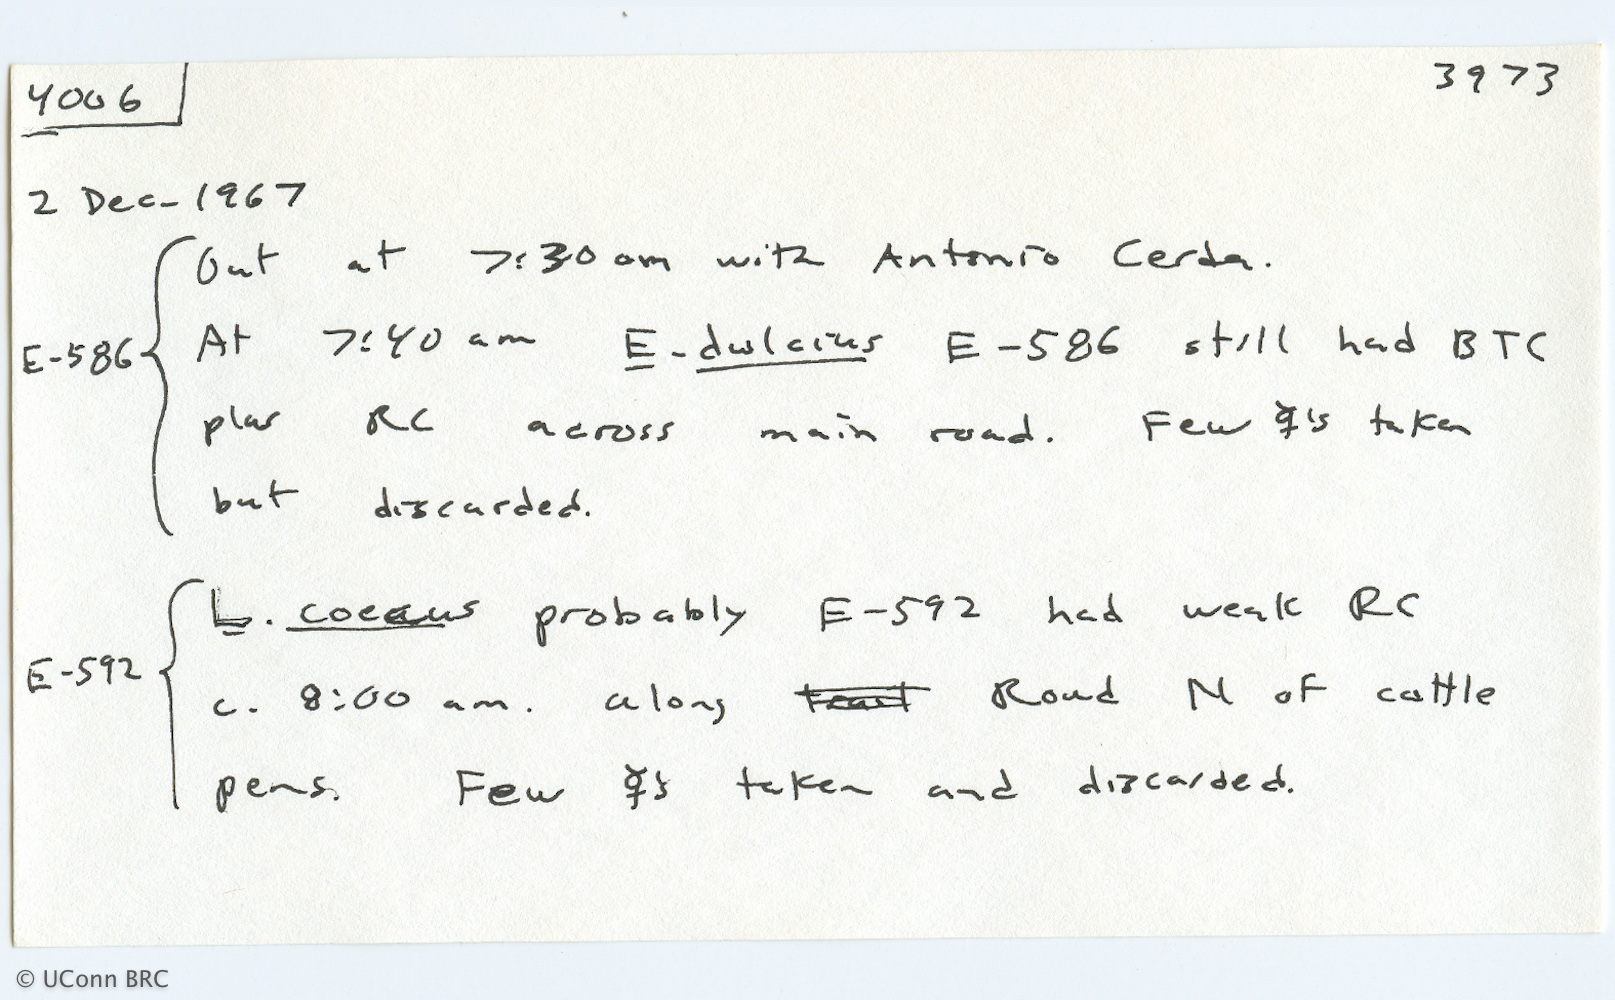 4006
3973
2 Dec-1967
Out at 7:30 am with Antonio Cerda.
E-586 At 7:40 am E. dulcius E-586 still had BTC
plus RC across main road. Few ☿'s taken
but discarded.
L. coecus probably E-592 had weak RC
E-592 c. 8:00 am. along Road N of cattle
pens. Few ☿'s taken and discarded.
© UConn BRC